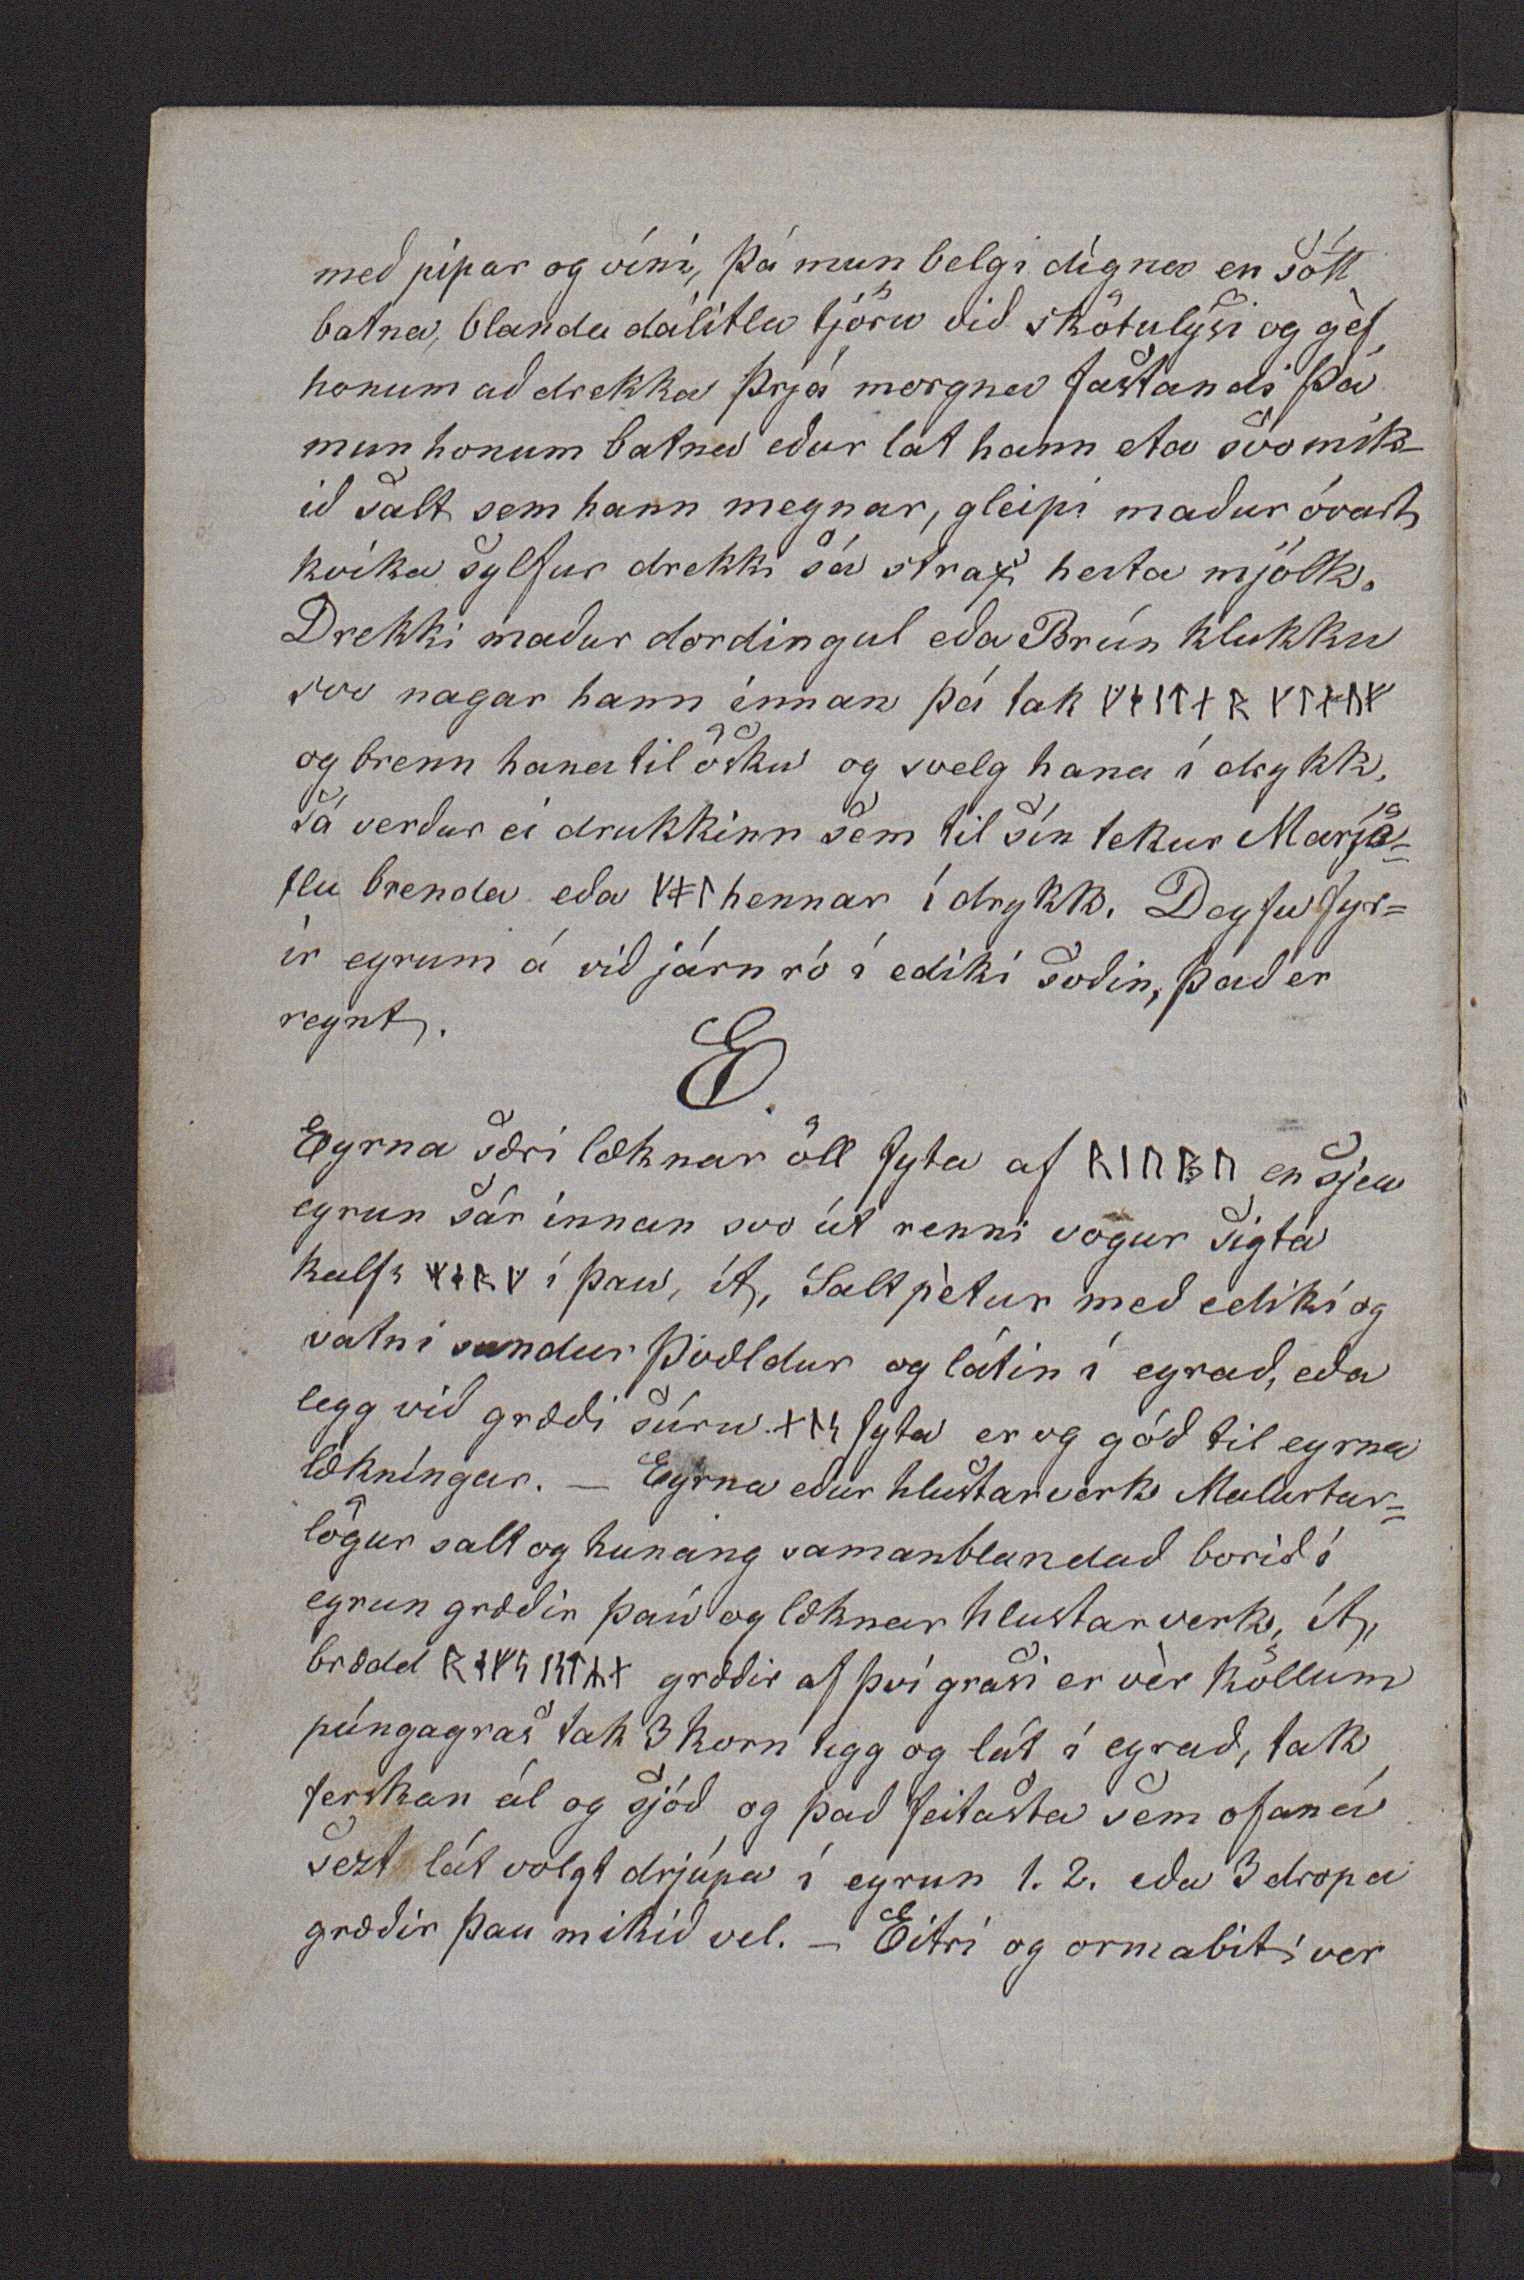 með pipar og víni, þá mun belgi digna en sótt
batna, blanda dálitlu tjöru við skötulýsi og gèf
honum að drekka þrjá morgna fastandi þá
mun honum batna eður lat hann eta svo mik-
ið salt sem hann megnar, gleipi maður óvart
kvika sylfur drekki sá strax hesta mjólk.
Drekki maður dordingul eða Brún klukku
svo nagar hann innan þá tak ᚠᚽᛁᛏᚾᚱ ᚠᛚᚾᚢᚠ
og brenn hana til ösku og svelg hana í drykk.
Sá verður ei drukkinn sem til sín tekur Marjö=
tlu brenda eða ᚠᚼᛚ hennar í drykk. Deyfu fyr=
ir eyrum á við járn ró í ediki soðin, það er
reynt.
E.
Eyrna særi læknar öll fyta af ᚱᛁᚢᛒᚢ en sjeu
eyrun sár innan svo út renni vogur sigta
kalfs ᚠᚽᚱᚠ í þau, it, Saltpètur með ediki og
vatni sundur þvældur og látin í eyrað, eða
legg við græði súru. ᚾᛚᛋ fyta er og góð til eyrna
lækníngar. — Eyrna eður hlustarverk Malurtar=
lögur salt og hunáng samanblandað borið í
eyrun græðir þau og læknar hlustarverk, it,
brædd ᚱᚽᚠᛋ ᛋᛏᚽᚾ græðir af því grasi er vèr köllum
púngagras tak 3 korn tigg og lát í eyrað, tak
ferskan ál og sjóð og það feitasta sem ofaná
sezt lát volgt drjúpa í eyrun 1. 2. eða 3 dropa
græðir þau mikið vel. — Eitri og ormabiti ver